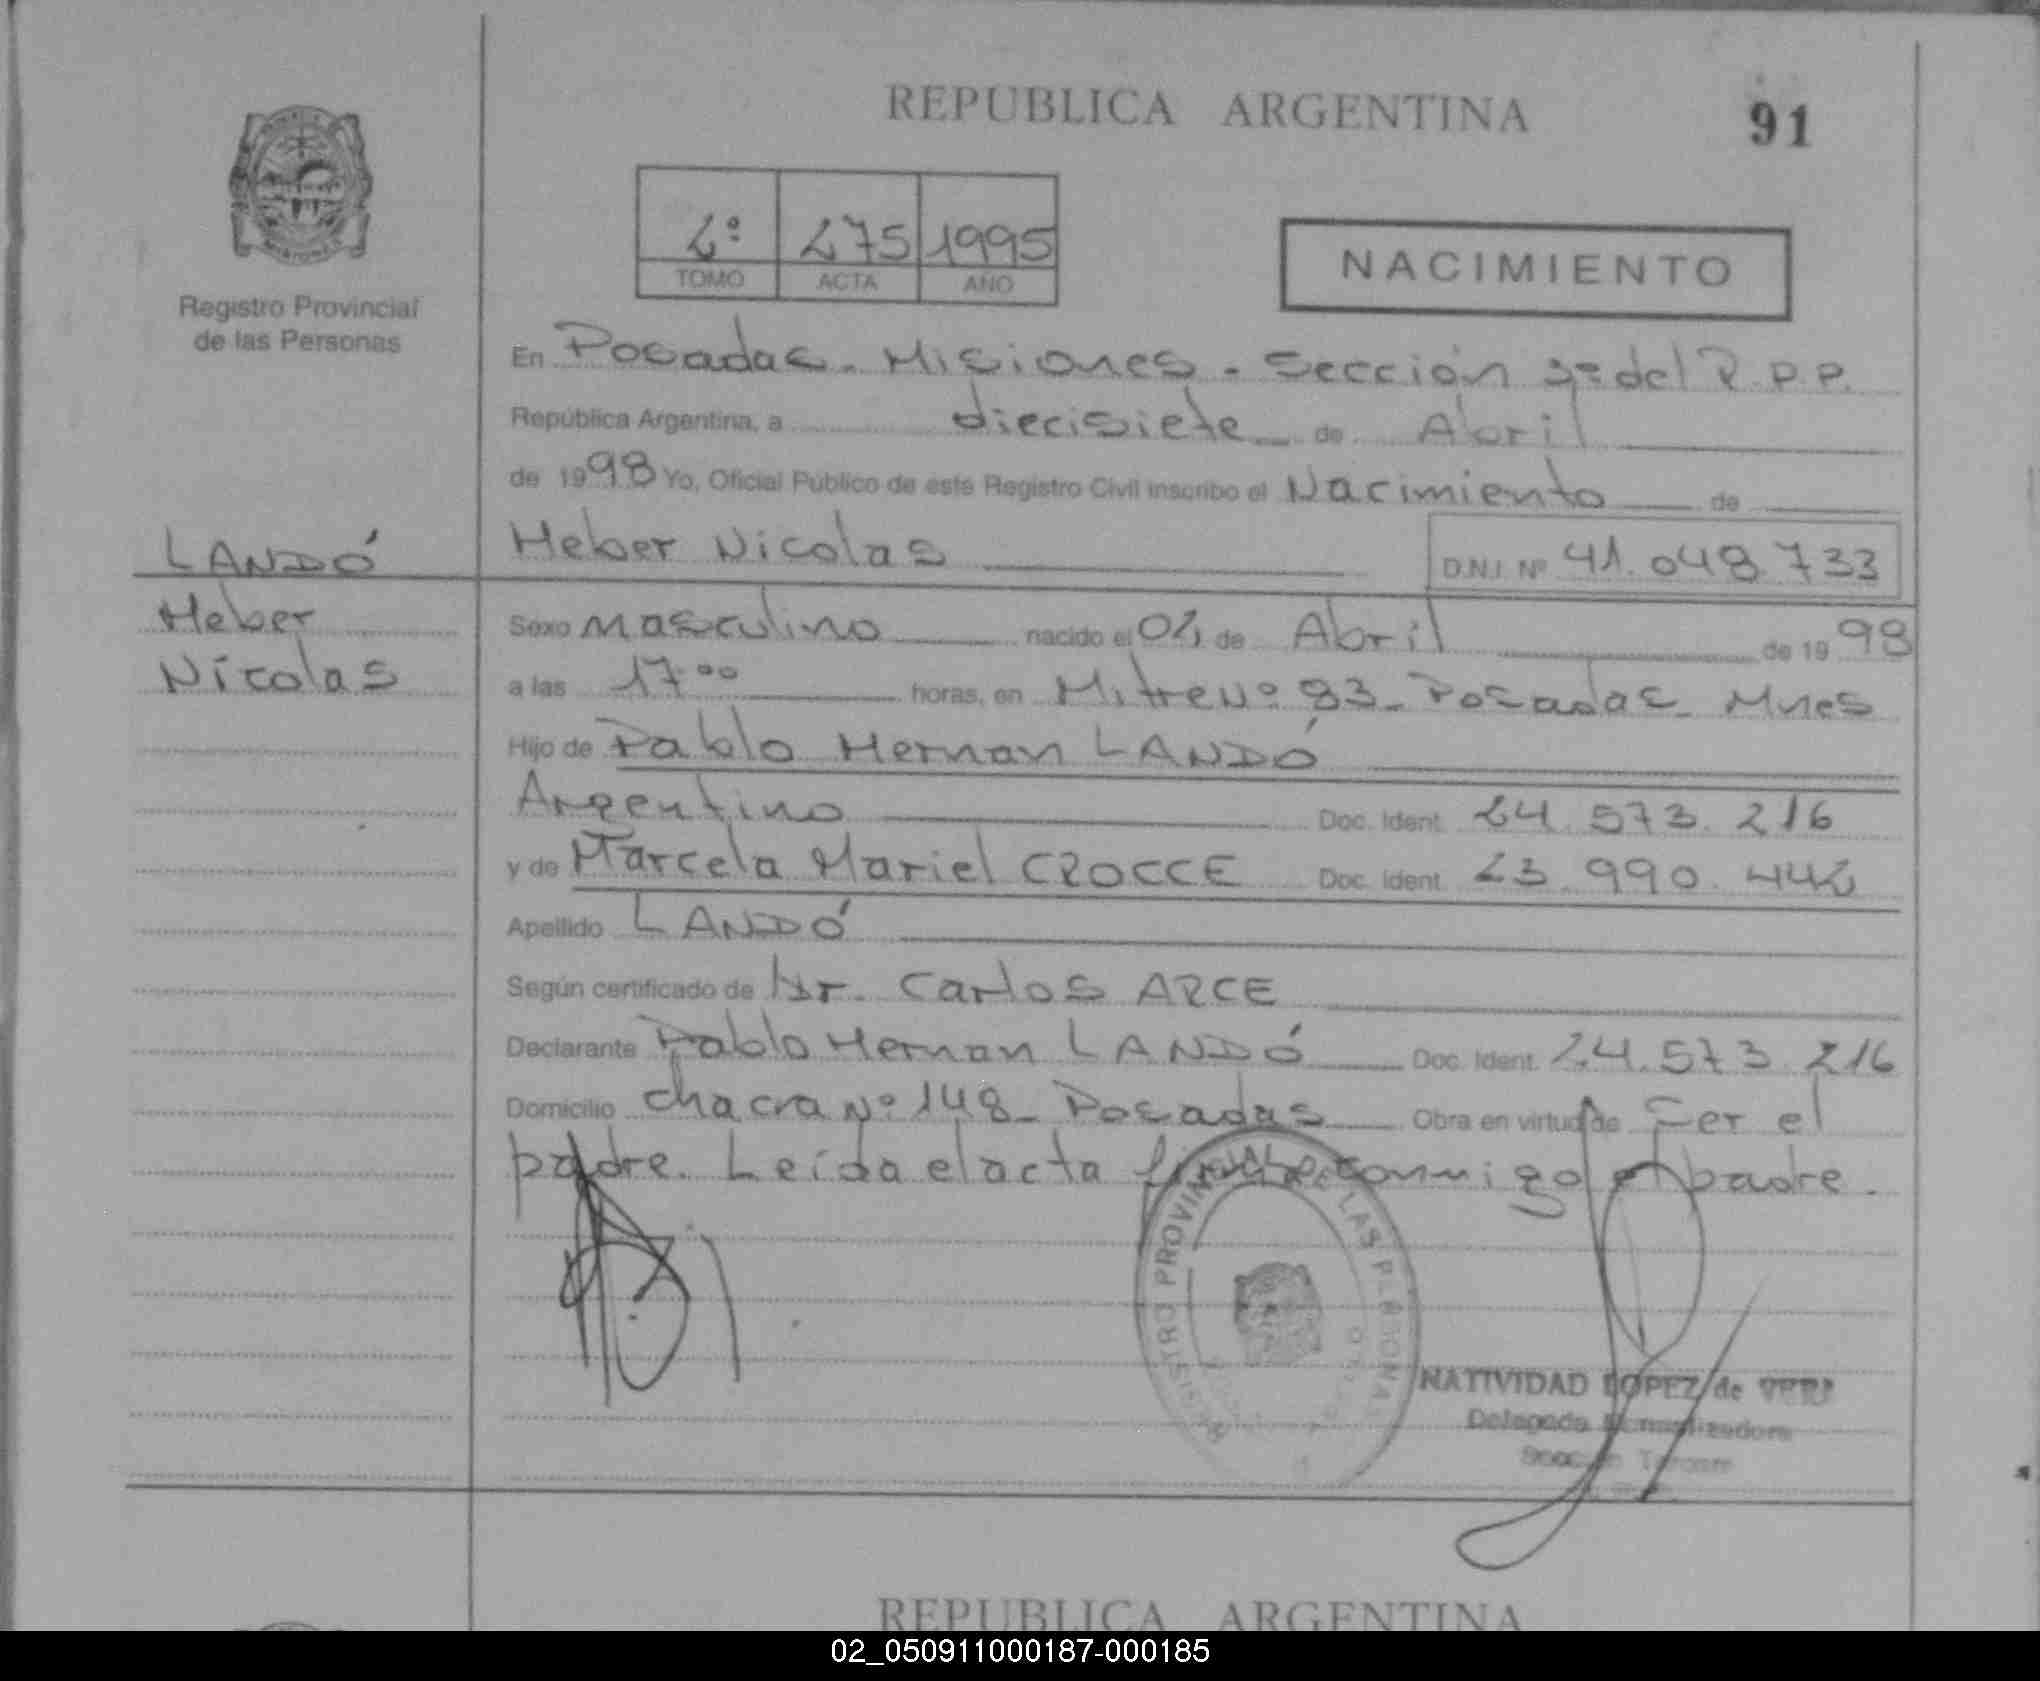 REPUBLICA ARGENTINA
91
2º 275 1995
TOMO ACTA AÑO
NACIMIENTO
Registro Provincial
de las Personas
En Posadas - Misiones - Sección 3ª del R.P.P.
República Argentina, a diecisiete de Abril
de 1998 Yo, Oficial Público de este Registro Civil inscribo el Nacimiento de
LANDÓ
Heber Nicolas D.N.I. Nº 41.048.733
Heber
Nicolas
Sexo Masculino nacido el 02 de Abril de 1998
a las 17ºº horas, en Mitre Nº 93 - Posadas - Mnes
Hijo de Pablo Hernan LANDÓ
Argentino Doc. Ident. 24.573.216
y de Marcela Mariel CROCCE Doc. Ident. 23.990.442
Apellido LANDÓ
Según certificado de Dr. Carlos ARCE
Declarante Pablo Hernan LANDÓ Doc. Ident. 24.573.216
Domicilio Chacra Nº 148 - Posadas Obra en virtud de Ser el
padre. Leída el acta firma conmigo el padre.
REGISTRO PROVINCIAL DE LAS PERSONAS
NATIVIDAD LOPEZ de
Delegada
REPUBLICA ARGENTINA
02_050911000187-000185